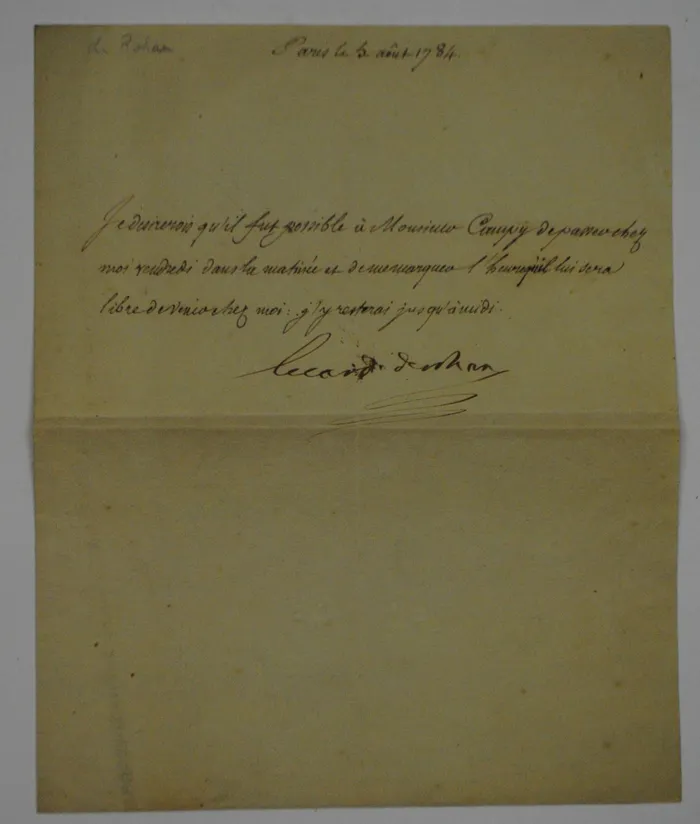 de Rohan
Paris le 3 août 1784.
Je desirerois qu'il fut possible à Monsieur de passer chez
moi vendredi dans la matinée et de me marquer l'heure qu'il lui sera
libre de venir chez moi: j'y resterai jusqu'à midi.
le card. de rohan